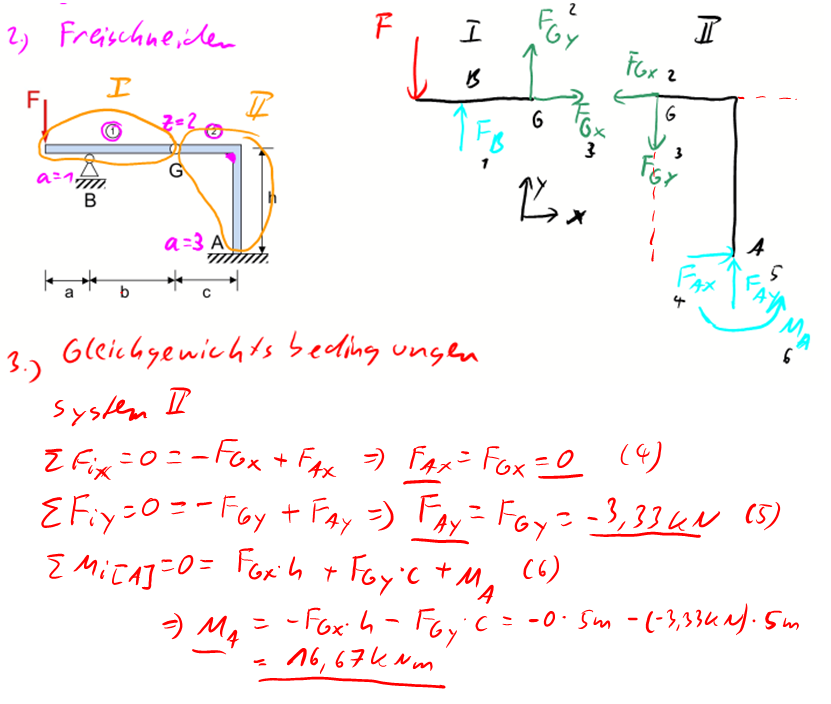 2.) Freischneiden
F I II
F_Gy 2
B G F_Gx 3
F_B 1
F_Gx 2
G
F_Gy 3
y x
A
F_Ax 4
F_Ay 5
M_A 6
I
II
F
① z=2 ②
G
a=1
B
h
a=3 A
a b c
3.) Gleichgewichtsbedingungen
System II
ΣF_ix=0=-F_Gx+F_Ax ⇒ F_Ax=F_Gx=0 (4)
ΣF_iy=0=-F_Gy+F_Ay ⇒ F_Ay=F_Gy=-3,33kN (5)
ΣM_i[A]=0= F_Gx·h + F_Gy·c + M_A (6)
⇒ M_A = -F_Gx·h - F_Gy·c = -0·5m -(-3,33kN)·5m
= 16,67kNm